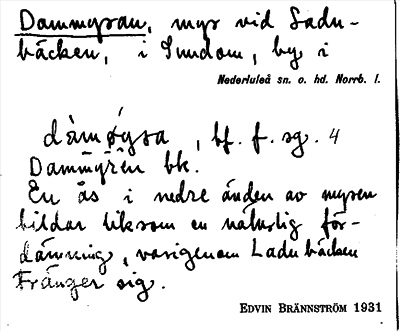 Dammyran, myr vid Ladu-
bäcken, i Sundom, by i
Nederluleå sn. o. hd. Norrb. l.
bf. f. sg. 4
Dammyren bk.
En ås i nedre änden av myren
bildar liksom en naturlig för-
dämning, varigenom Ladubäcken
tränger sig.
EDVIN BRÄNNSTRÖM 1931